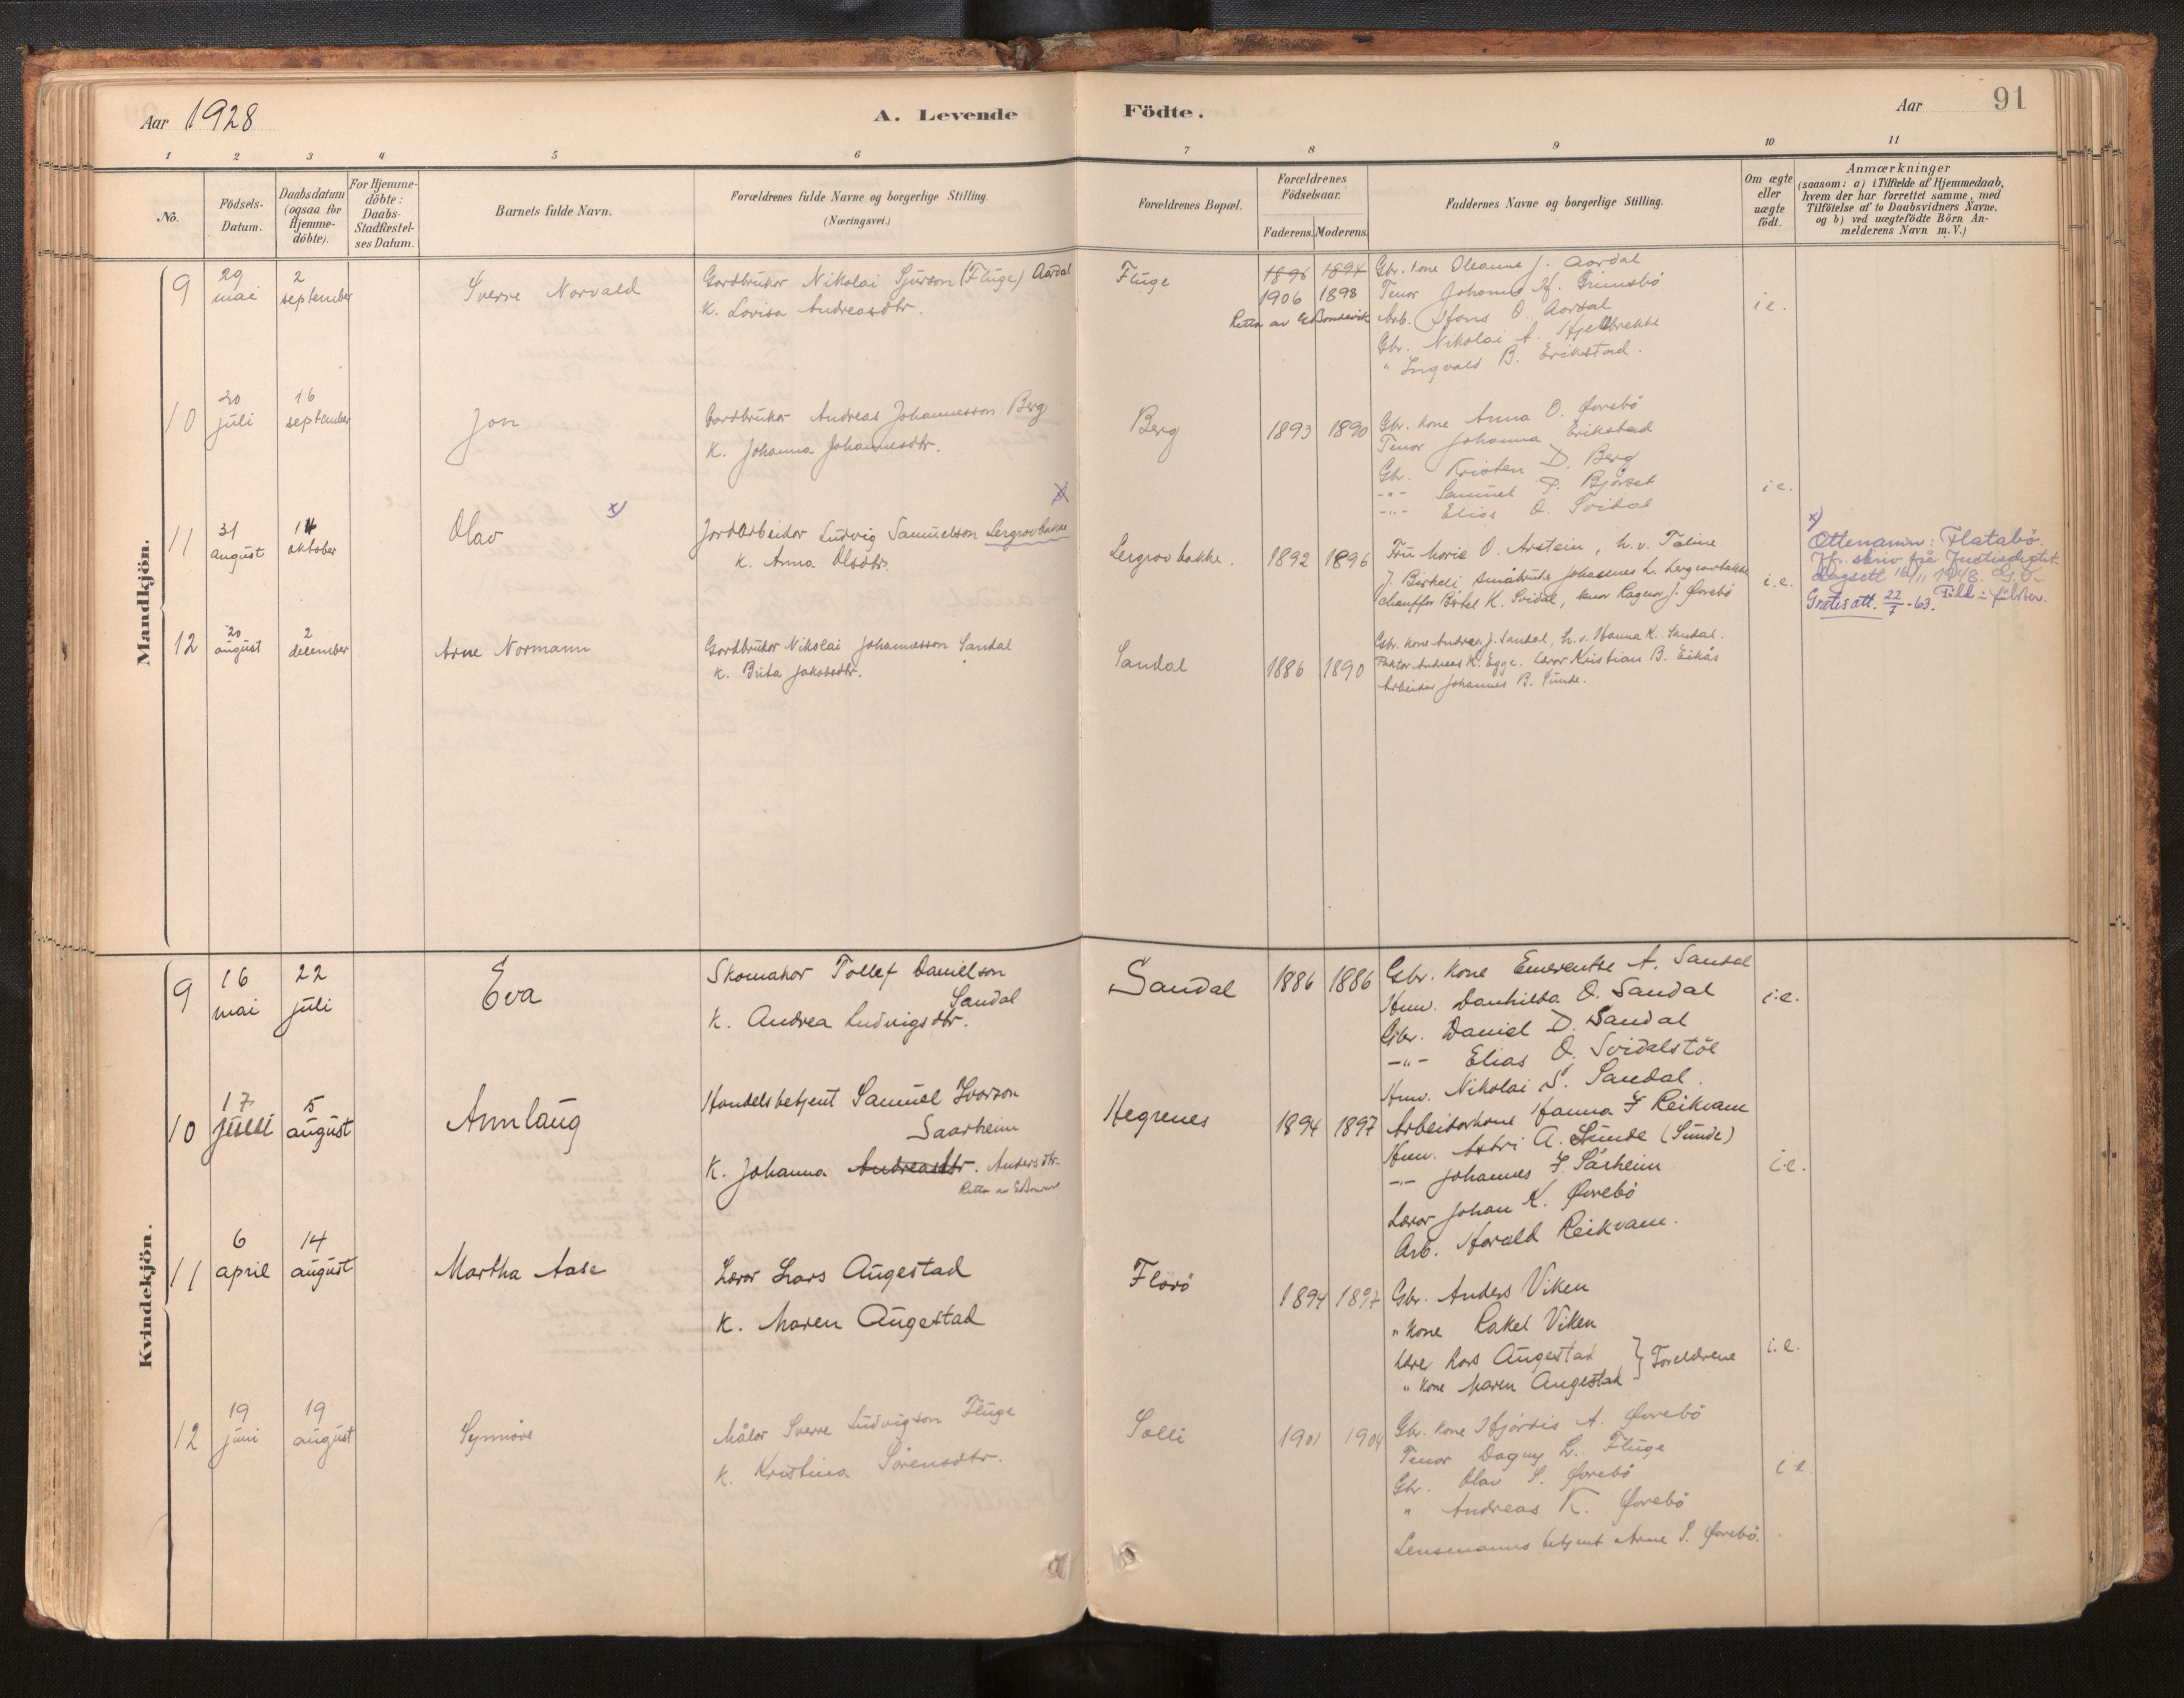 Aar 1928
A. Levende Födte.
Aar 91
1 2 3 4 5 6 7 8 9 10 11
No.
Födsels-Datum.
Daabsdatum (ogsaa for Hjemme-döbte).
For Hjemme-döbte: Daabs-Stadfæstel-ses Datum.
Barnets fulde Navn.
Forældrenes fulde Navne og borgerlige Stilling.
(Næringsvei.)
Forældrenes Bopæl.
Forældrenes Födselsaar.
Faderens. Moderens.
Faddernes Navne og borgerlige Stilling.
Om ægte eller uægte födt.
Anmærkninger
(saasom: a) i Tilfælde af Hjemmedaab,
hvem der har forrettet samme, med
Tilföielse af to Daabsvidners Navne,
og b) ved uægtefödte Börn An-
melderens Navn m. V.)
Mandkjön.
9 29 mai 2 september Sverre Norvald
Gardbrukar Nikolai Sjurson (Fluge) Aardal
K. Lovisa Andreasdtr.
Fluge
1896 1894
1906 1898
Retta av EBondevik
Gbr. kone Oleanna J. Aardal
Tenor Johanna H. Grimsbö
Arb. Hans O. Aardal
Gbr. Nikolai A. Hjelbrekke
" Ingvald B. Erikstad.
i e.
10 20 juli 16 september Jon
Gardbrukar Andreas Johannesson Berg
K. Johanna Johannesdtr.
Berg 1893 1890
Gbr. kone Anna O. Øvrebö
Tenor Johanna Erikstad
Gbr. Kristen D. Berg
-"- Samuel P. Bjørset
-"- Elias O. Svidal
i e.
11 31 august 14 oktober Olav x)
x
Jordarbeidar Ludvig Samuelson Lergrovbakke
K. Anna Olsdtr.
Lergrovbakke. 1892 1896
Fru Marie O. Arstein, h.v. Taline
J. Birkeli, småbrukar Johannes L. Lergrovbakke
chauffør Bertel K. Svidal, tenor Ragnar J. Øvrebö
i.e.
x)
Ettenamn: Flatabö.
Jfr. skriv frå Justisdeptet
dagsett 16/11 1948. G.O.
Gratisatt. 22/7 -63.
12 20 august 2 december Arne Normann
Gardbrukar Nikolai Johannesson Sandal
K. Brita Jakobsdtr.
Sandal 1886 1890
Gbr. kone Andrea J. Sandal, h.v. Hanna K. Sandal.
Faktor Andreas K. Egge. Lærar Kristian B. Eikås
Arbeidar Johannes B. Sunde.
Kvindekjön.
9 16 mai 22 juli Eva
Skomakar Tollef Danielson
Sandal
K. Andrea Ludvigsdtr.
Sandal 1886 1886
Gbr. kone Emerentse A. Sandal
Unv. Danhilda O. Sandal
Gbr. Daniel D. Sandal
-"- Elias O. Svidalstöl
Unv. Nikolai S. Sandal.
i.e.
10 17 juli 5 august Annlaug
Handelsbetjent Samuel Ivarson
Saarheim
K. Johanna Andreasdtr. Andersdtr.
Hegrenes 1894 1897
Arbeidarkone Hanna I Reikvam
Unv. Astri A. Sunde (Sunde)
-"- Johannes I. Sårheim
Lærar Johan K. Øvrebö
Arb. Harald Reikvam.
i.e.
11 6 april 14 august Martha Aase
Lærar Lars Augestad
K. Maren Augestad
Florö 1894 1897
Gbr. Anders Viken
" kone Rakel Viken
Lærar Lars Augestad } Foreldrene
" kone Maren Augestad
i.e.
12 19 juni 19 august Synnöve
Målar Sverre Ludvigson Fluge
K. Kristina Sörensdtr.
Solli 1901 1904
Gbr. kone Hjördis A. Øvrebö
Tenor Dagny L. Fluge
Gbr. Olav S. Øvrebö
" Andreas K. Øvrebö
Lensmanns betjent Arne S. Øvrebö.
i e.